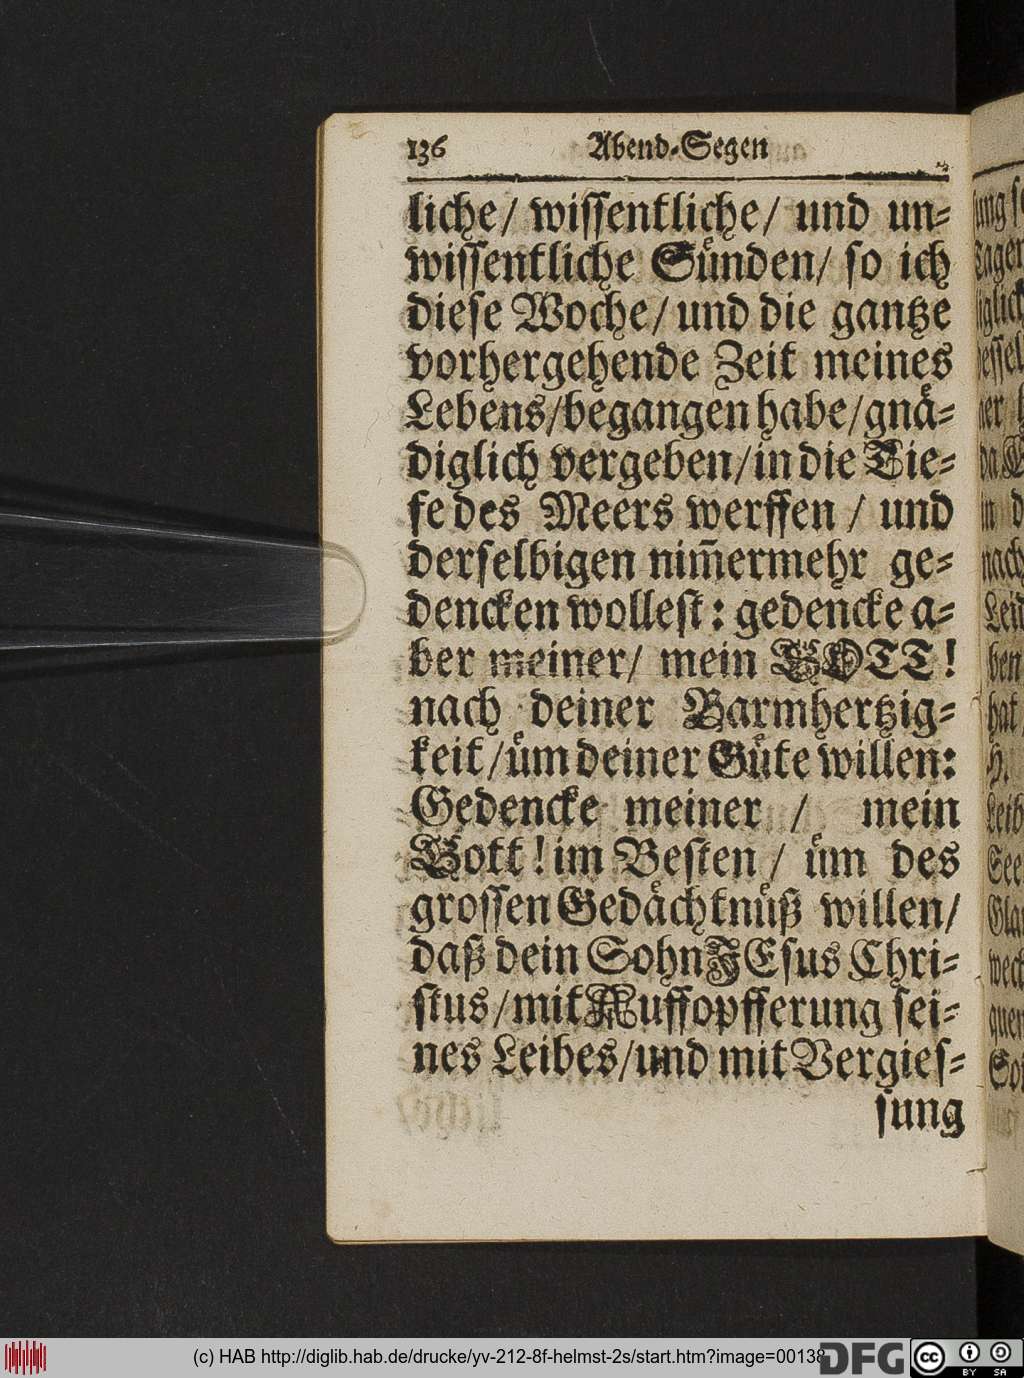 136 Abend-Segen
liche/ wissentliche/ und un-
wissentliche Sünden/ so ich
diese Woche/ und die gantze
vorhergehende Zeit meines
Lebens/begangen habe/gnä-
diglich vergeben/in die Tie-
fe des Meers werffen / und
derselbigen nim̃ermehr ge-
dencken wollest: gedencke a-
ber meiner/ mein GOTT!
nach deiner Barmhertzig-
keit/üm deiner Güte willen:
Gedencke meiner / mein
Gott! im Besten / üm des
grossen Gedächtnüß willen/
daß dein Sohn JEsus Chri-
stus/mit Auffopfferung sei-
nes Leibes/und mit Vergies-
sung
(c) HAB http://diglib.hab.de/drucke/yv-212-8f-helmst-2s/start.htm?image=00138
DFG
cc BY SA